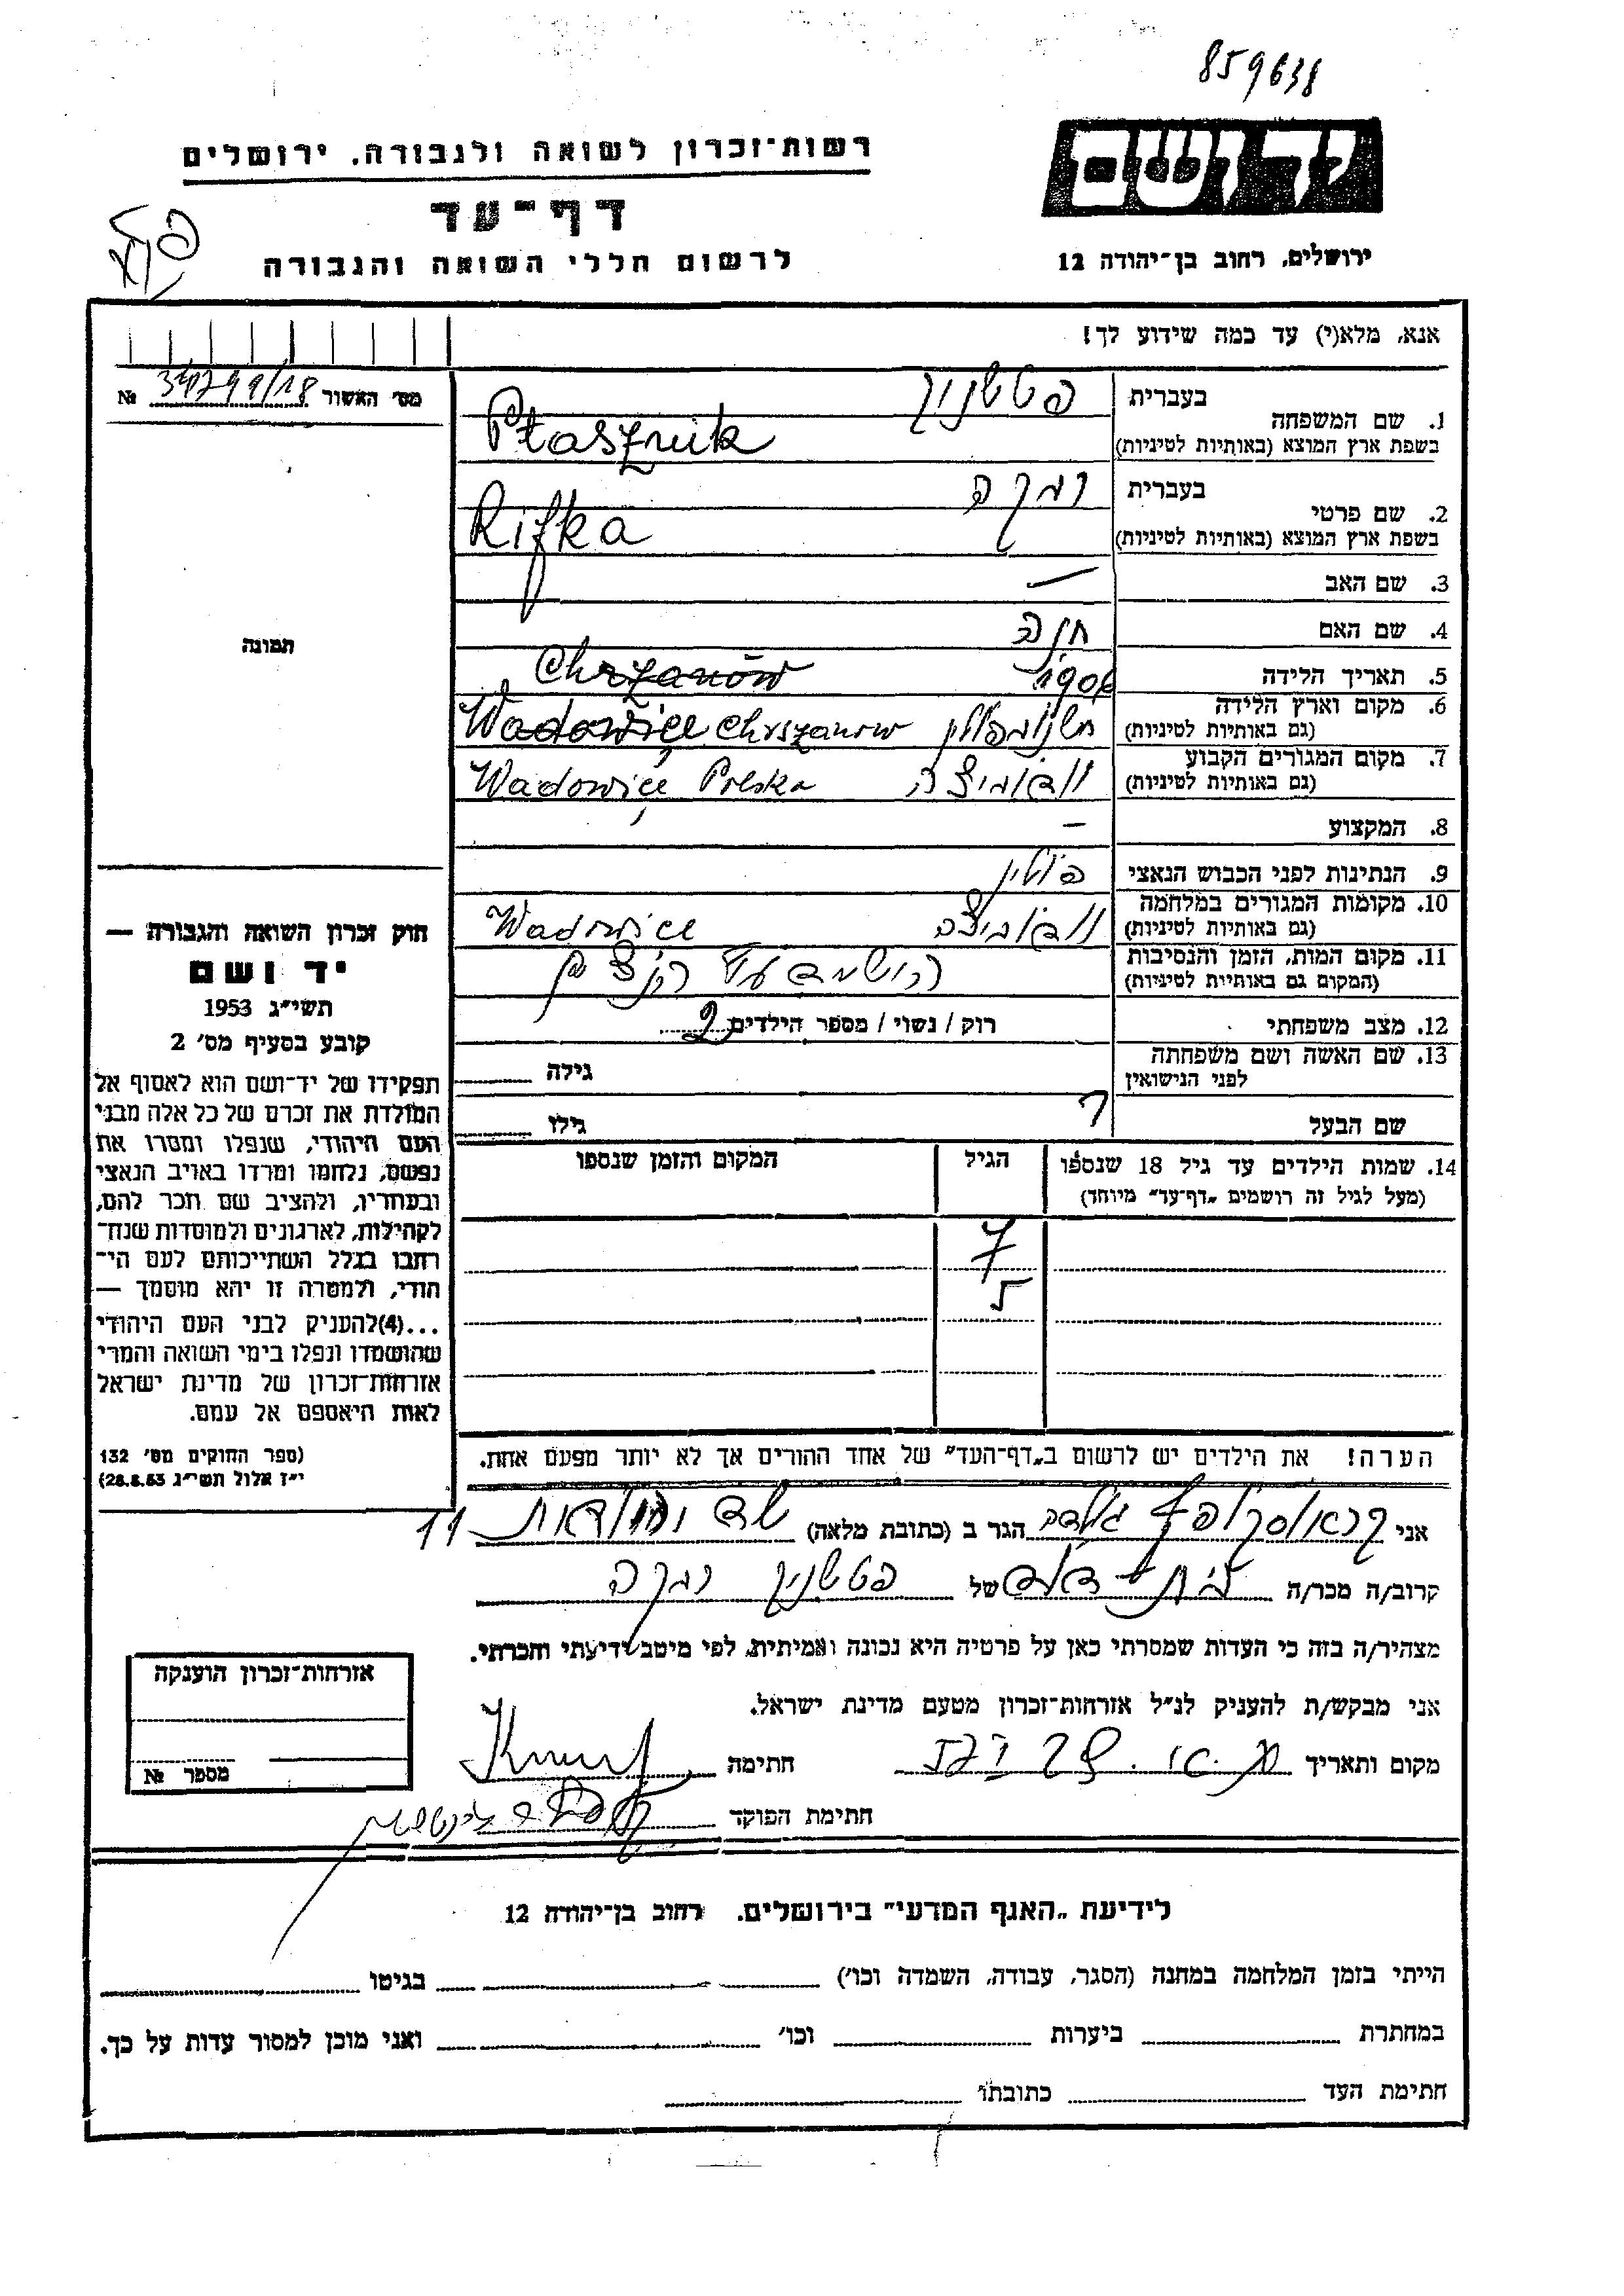 859638
יד ושם
רשות־זכרון לשואה ולגבורה, ירושלים
דף־עד
ירושלים, רחוב בן־יהודה 12
לרשום חללי השואה והגבורה
אנא, מלא(י) עד כמה שידוע לך!
מס' האשור №
1. שם המשפחה
בעברית
בשפת ארץ המוצא (באותיות לטיניות)
Ptasznik
2. שם פרטי
בעברית רבקה
בשפת ארץ המוצא (באותיות לטיניות)
Rifka
3. שם האב —
4. שם האם חנה
5. תאריך הלידה Chrzanów
6. מקום וארץ הלידה
(גם באותיות לטיניות)
Wadowice Chrszanow
7. מקום המגורים הקבוע
(גם באותיות לטיניות)
Wadowice Polska
8. המקצוע —
9. הנתינות לפני הכבוש הנאצי פולין
10. מקומות המגורים במלחמה
(גם באותיות לטיניות)
Wadowice
11. מקום המות, הזמן והנסיבות
(המקום גם באותיות לטיניות)
12. מצב משפחתי רוק / נשוי / מספר הילדים 2
13. שם האשה ושם משפחתה
לפני הנישואין
גילה
שם הבעל ?
גילו
14. שמות הילדים עד גיל 18 שנספו
(מעל לגיל זה רושמים „דף־עד" מיוחד)
הגיל
המקום והזמן שנספו
7
5
הערה! את הילדים יש לרשום ב„דף־העד" של אחד ההורים אך לא יותר מפעם אחת.
תמונה
חוק זכרון השואה והגבורה —
יד ושם
תשי"ג 1953
קובע בסעיף מס' 2
תפקידו של יד־ושם הוא לאסוף אל
המולדת את זכרם של כל אלה מבני
העם היהודי, שנפלו ומסרו את
נפשם, נלחמו ומרדו באויב הנאצי
ובעוזריו, ולהציב שם וזכר להם,
לקהילות, לארגונים ולמוסדות שנח־
רבו בגלל השתייכותם לעם הי־
הודי, ולמטרה זו יהא מוסמך —
...(4)להעניק לבני העם היהודי
שהושמדו ונפלו בימי השואה והמרי
אזרחות־זכרון של מדינת ישראל
לאות היאספם אל עמם.
(ספר החוקים מס' 132
י"ז אלול תשי"ג 28.8.53)
אני הגר ב (כתובת מלאה) 11
קרוב/ה מכר/ה של רבקה
מצהיר/ה בזה כי העדות שמסרתי כאן על פרטיה היא נכונה ואמיתית, לפי מיטב ידיעתי והכרתי.
אני מבקש/ת להעניק לנ"ל אזרחות־זכרון מטעם מדינת ישראל.
מקום ותאריך חתימה
חתימת הפוקד
אזרחות־זכרון הוענקה
מספר №
לידיעת „האגף המדעי" בירושלים, רחוב בן־יהודה 12
הייתי בזמן המלחמה במחנה (הסגר, עבודה, השמדה וכו') בגיטו
במחתרת ביערות וכו' ואני מוכן למסור עדות על כך.
חתימת העד כתובתו